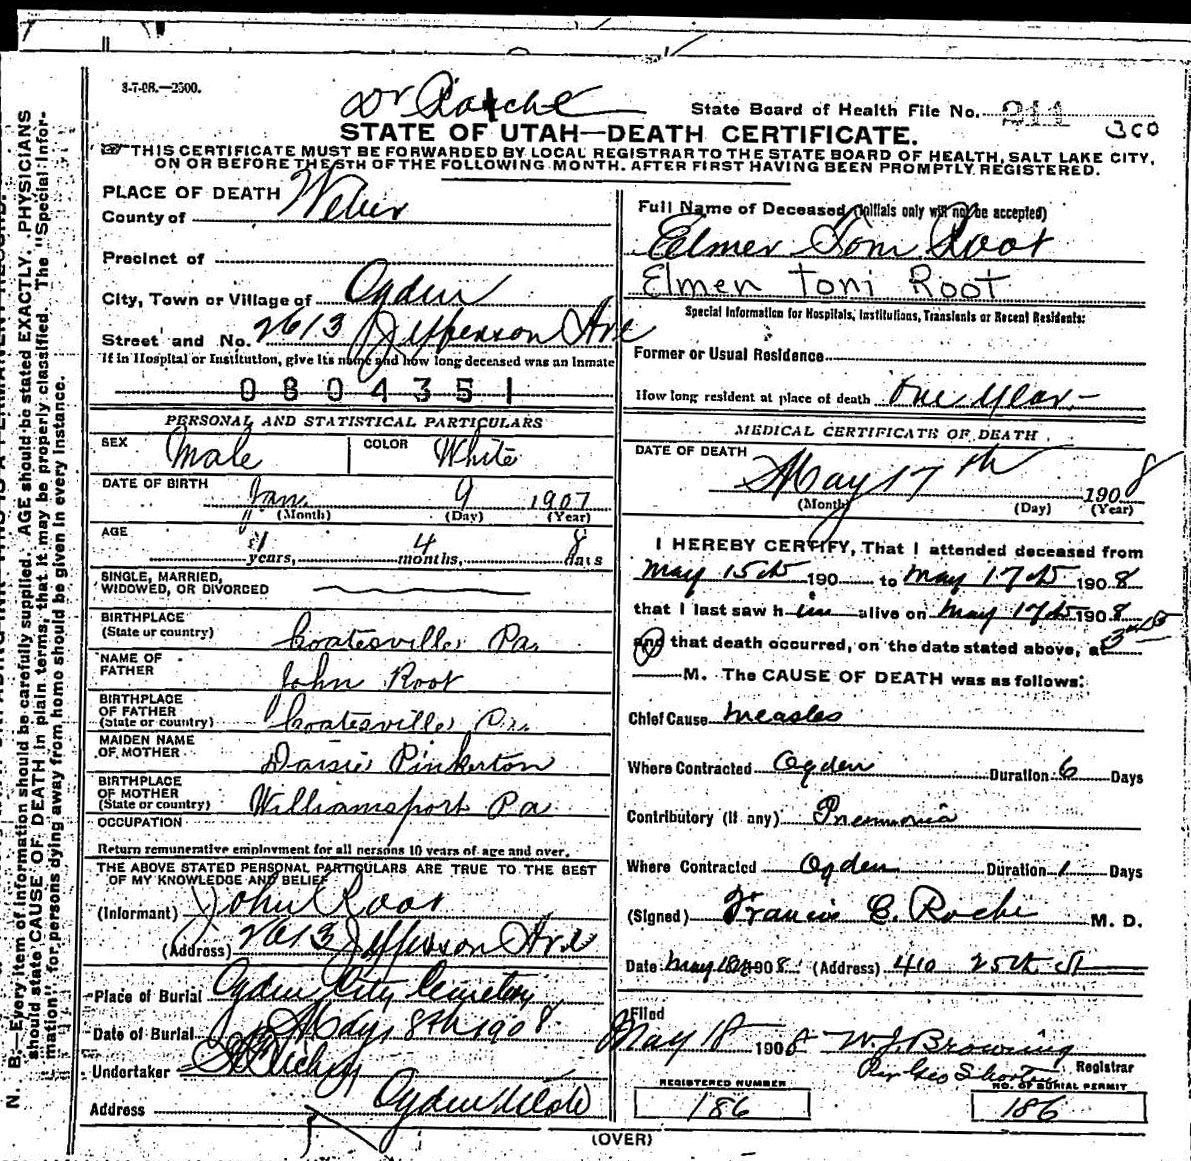 3-7-08.—2500.
Dr Roche
State Board of Health File No. 211
300
STATE OF UTAH—DEATH CERTIFICATE.
THIS CERTIFICATE MUST BE FORWARDED BY LOCAL REGISTRAR TO THE STATE BOARD OF HEALTH, SALT LAKE CITY,
ON OR BEFORE THE 5TH OF THE FOLLOWING MONTH. AFTER FIRST HAVING BEEN PROMPTLY REGISTERED.
PLACE OF DEATH
County of Weber
Precinct of
City, Town or Village of Ogden
Street and No. 2613 Jefferson Ave
If in Hospital or Institution, give its name and how long deceased was an Inmate
0804351
PERSONAL AND STATISTICAL PARTICULARS
SEX Male COLOR White
DATE OF BIRTH Jan. 9 1907
(Month) (Day) (Year)
AGE 1 years, 4 months, 8 days
SINGLE, MARRIED,
WIDOWED, OR DIVORCED
BIRTHPLACE
(State or country) Coatesville, Pa.
NAME OF
FATHER John Root
BIRTHPLACE
OF FATHER
(State or country) Coatesville, Pa.
MAIDEN NAME
OF MOTHER Daisie Pinkerton
BIRTHPLACE
OF MOTHER
(State or country) Williamsport Pa
OCCUPATION
Return remunerative employment for all persons 10 years of age and over.
THE ABOVE STATED PERSONAL PARTICULARS ARE TRUE TO THE BEST
OF MY KNOWLEDGE AND BELIEF
(Informant) John Root
(Address) 2613 Jefferson Ave
Place of Burial Ogden City Cemetery
Date of Burial May 18th 1908
Undertaker
Address Ogden Utah
Full Name of Deceased (Initials only will not be accepted)
Elmer Toni Root
Elmer Toni Root
Special Information for Hospitals, Institutions, Transients or Recent Residents:
Former or Usual Residence
How long resident at place of death One Year.—
MEDICAL CERTIFICATE OF DEATH
DATE OF DEATH
May 17th 1908
(Month) (Day) (Year)
I HEREBY CERTIFY, That I attended deceased from
May 15th 190 to May 17th 1908
that I last saw him alive on May 17th 1908
and that death occurred, on the date stated above, at
M. The CAUSE OF DEATH was as follows:
Chief Cause Measles
Where Contracted Ogden Duration 6 Days
Contributory (if any) Pneumonia
Where Contracted Ogden Duration 1 Days
(Signed) Francis C. Roche M. D.
Date May 18th 1908 (Address) 410 25th St
Filed
May 18 1908 W. J. Browning
Registrar
Per Geo Short
REGISTERED NUMBER
186
NO. OF BURIAL PERMIT
186
(OVER)
N. B.—Every item of information should be carefully supplied. AGE should be stated EXACTLY. PHYSICIANS
should state CAUSE OF DEATH in plain terms, that it may be properly classified. The "Special Infor-
mation" for persons dying away from home should be given in every instance.